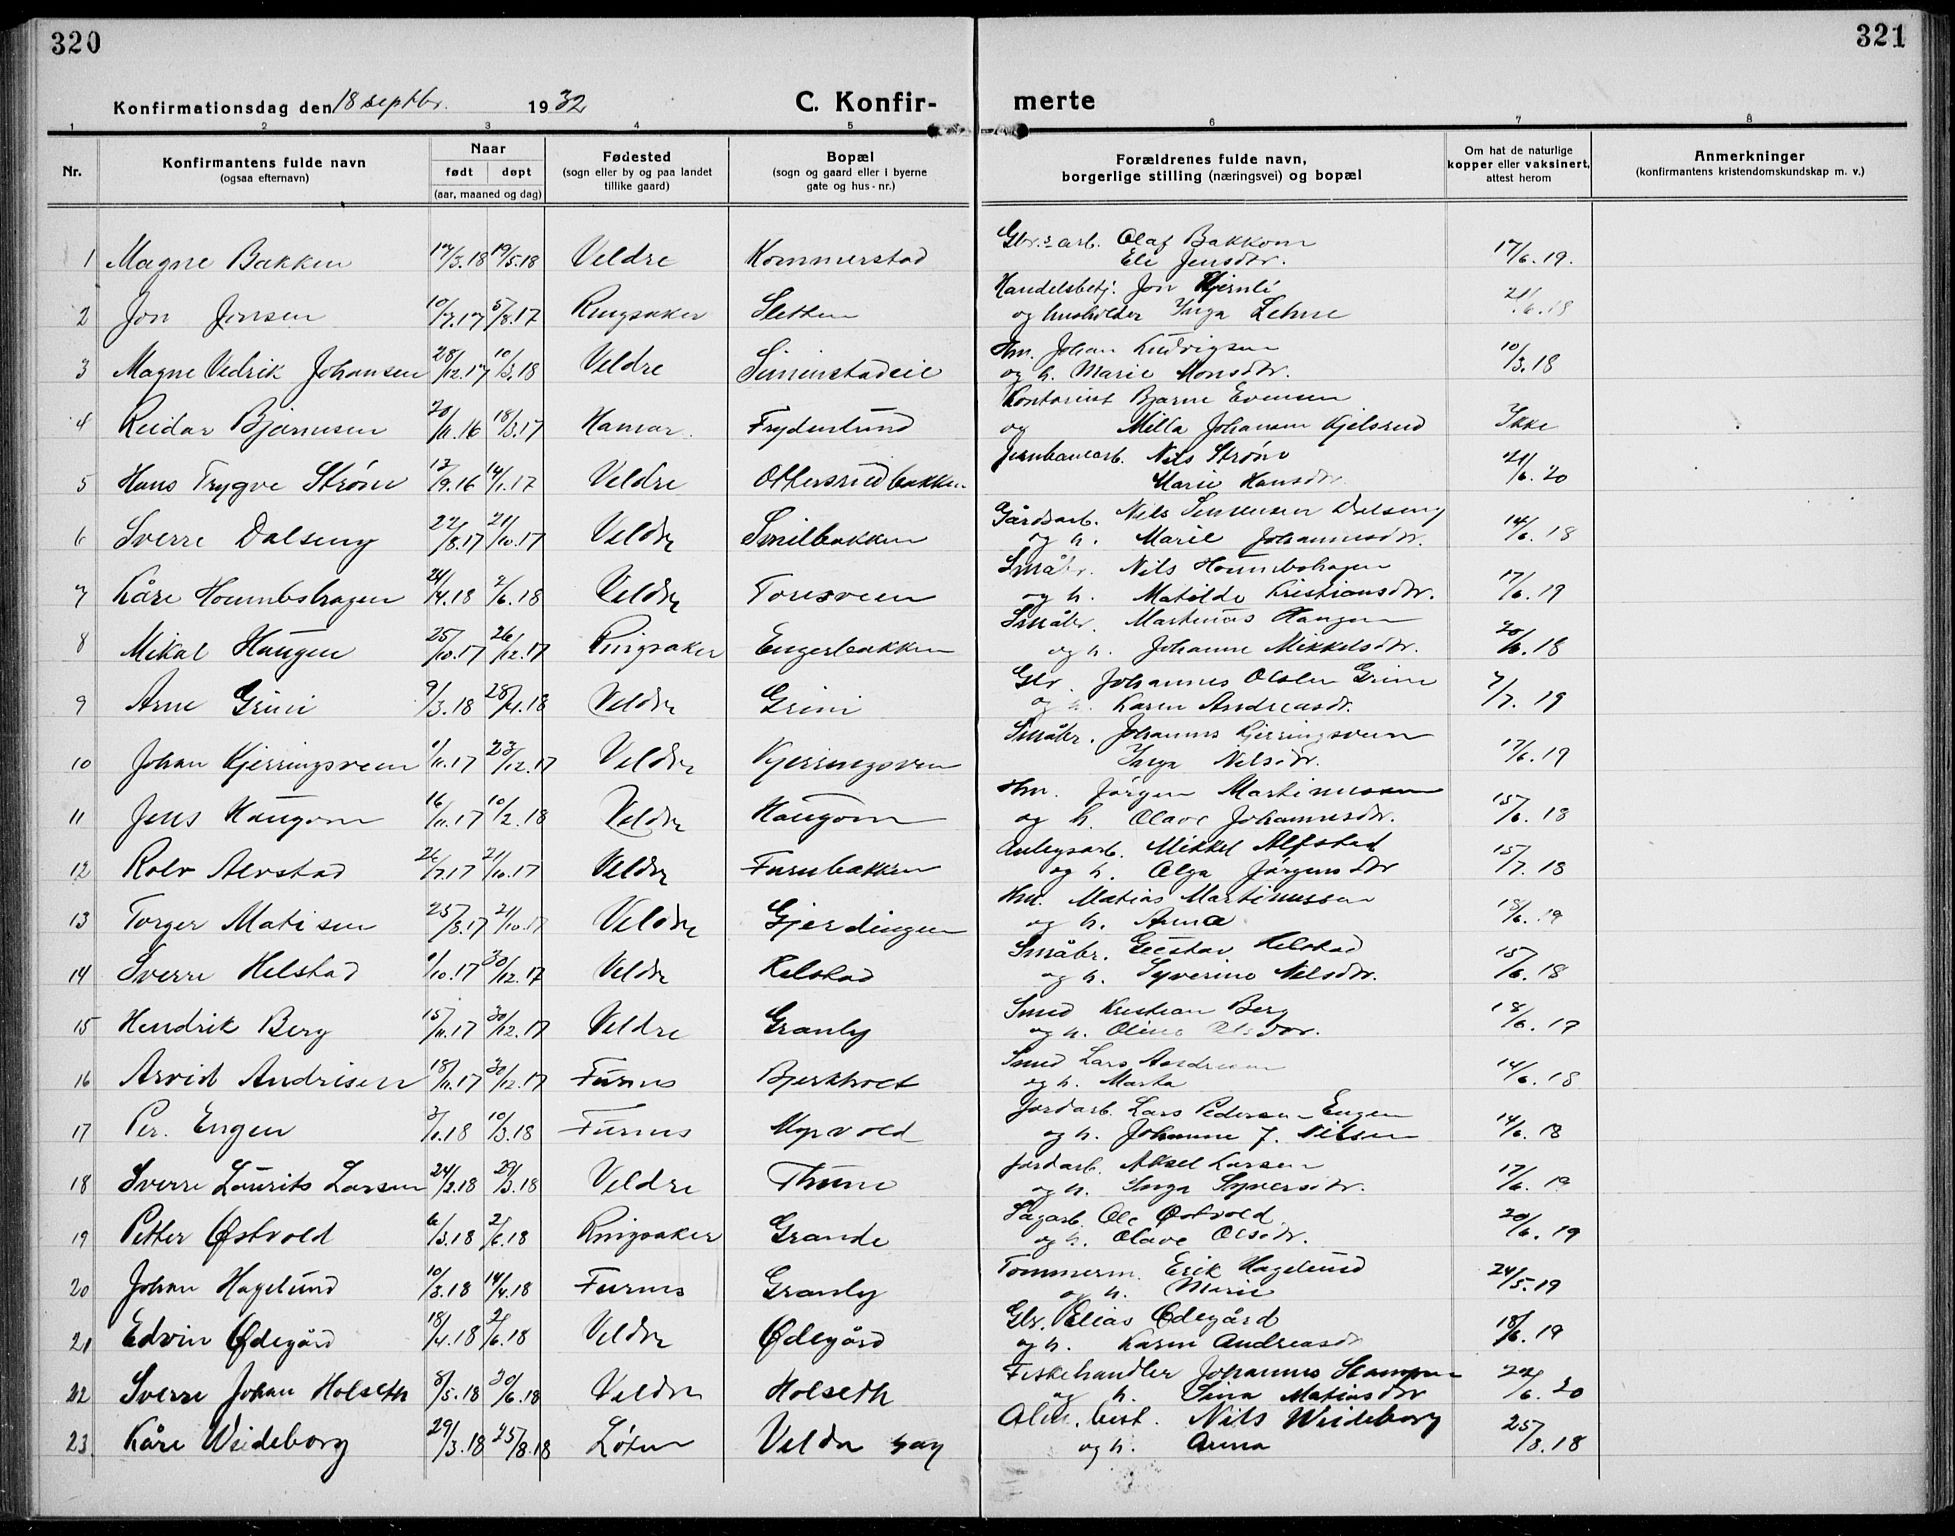 320
321
Konfirmationsdag den 18 septbr. 1932 C. Konfir- merte
1 2 3 4 5 6 7 8
Nr.
Konfirmantens fulde navn
(ogsaa efternavn)
Naar
født døpt
(aar, maaned og dag)
Fødested
(sogn eller by og paa landet
tillike gaard)
Bopæl
(sogn og gaard eller i byerne
gate og hus-nr.)
Forældrenes fulde navn,
borgerlige stilling (næringsvei) og bopæl
Om hat de naturlige
kopper eller vaksinert,
attest herom
Anmerkninger
(konfirmantens kristendomskundskap m. v.)
1 Magne Bakken 17/3.18 19/5.18 Veldre Kommerstad Gbr.s arb. Olaf Bakkom 17/6.19.
Eli Jensdtr.
2 Jon Jensen 10/7.17 5/8.17 Ringsaker Sletten Handelsbetj. Jon Hjernli 21/6.18
og husholder Inga Lehne
3 Magne Vedrik Johansen 28/12.17 10/3.18 Veldre Simenstadeie Hm. Johan Ludvigsen 10/3.18
og h. Marie Monsdtr.
4 Reidar Bjørnsen 20/11.16 18/3.17 Hamar Frydenlund Kontorist Bjarne Evensen Ikke
og Milla Johansen Kjelsrud
5 Hans Trygve Strøm 13/9.16 14/1.17 Veldre Ottersrudbakken Jernbanearb. Nils Strøm 21/6.20
Marie Hansdtr.
6 Sverre Dalseng 22/8.17 21/10.17 Veldre Smilbakken Gårdsarb. Nils Simensen Dalseng 14/6.18
og h. Marie Johannesdtr.
7 Kåre Hommbshagen 24/4.18 2/6.18 Veldre Toresveen Småbr. Nils Hommbshagen 17/6.19
og h. Matilde Kristiansdtr.
8 Mikal Haugen 25/10.17 26/12.17 Ringsaker Engerbakken Småbr. Martinus Haugen 20/6.18
og h. Johanne Mikkelsdtr.
9 Arne Grini 9/3.18 28/4.18 Veldre Grini Gbr. Johannes Olsen Grini 7/7.19
og h. Karen Andreasdr.
10 Johan Kjerringsveen 1/11.17 23/12.17 Veldre Kjerringsveen Småbr. Johannes Kjerringsveen 17/6.19
Inga Nilsdr.
11 Jens Haugom 16/11.17 10/2.18 Veldre Haugom Hm. Jørgen Martinussen 15/6.18
og h. Olave Johannesdr.
12 Rolv Alvstad 26/7.17 21/10.17 Veldre Furubakken Anlegsarb. Mikkel Alfstad 15/7.18
og h. Olga Jørgensdtr
13 Torger Matisen 25/8.17 21/10.17 Veldre Gjerdingen Hm. Matias Martinussen 18/6.19
og h. Anna
14 Sverre Helstad 1/10.17 30/12.17 Veldre Helstad Småbr. Gustav Helstad 15/6.18
og h. Syverine Nilsdtr.
15 Hendrik Berg 15/11.17 30/12.17 Veldre Granly Smed Kristian Berg 18/6.19
og h. Oline Olsdtr.
16 Arvid Andrisen 18/11.17 30/12.17 Furnes Bjerkholt Smed Lars Andresen 14/6.18
og h. Marta
17 Per Engen 3/1.18 10/3.18 Furnes Myrvold Jordarb. Lars Pedersen Engen 14/6.18
og h. Johanne J. Nilsen
18 Sverre Laurits Larsen 24/2.18 29/3.18 Veldre Thune Jordarb. Aksel Larsen 17/6.19
og h. Inga Syversdtr.
19 Petter Østvold 6/3.18 2/6.18 Ringsaker Grande Sagarb. Ole Østvold 20/6.19
og h. Olave Olsdtr.
20 Johan Hagelund 10/3.18 14/4.18 Furnes Granly Tømmerm. Erik Hagelund 24/5.19
og h. Marie
21 Edvin Ødegård 18/4.18 2/6.18 Veldre Ødegård Gbr. Elias Ødegård 18/6.19
og h. Karen Andreasdr
22 Sverre Johan Holseth 8/5.18 30/6.18 Veldre Holseth Fiskehandler Johannes Stampen 22/6.20
og h. Sina Matiasdtr
23 Kåre Weideborg 29/3.18 25/8.18 Løten Velda Alm. best. Nils Weideborg 25/8.18
og h. Anna